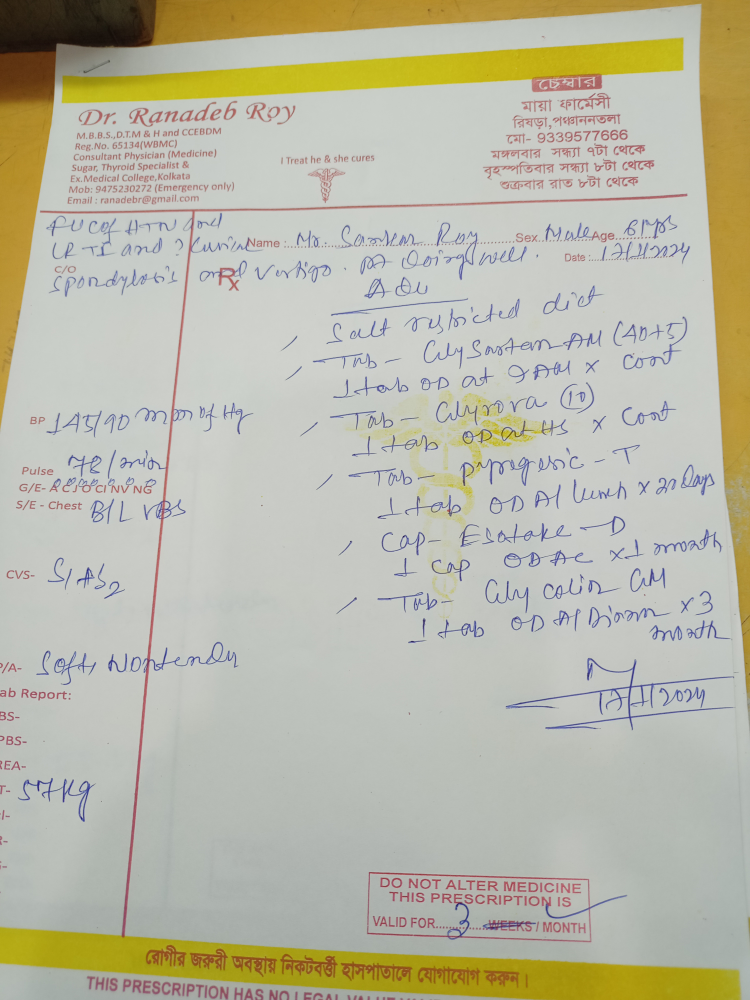 চেম্বার
Dr. Ranadeb Roy
M.B.B.S.,D.T.M & H and CCEBDM
Reg.No. 65134(WBMC)
Consultant Physician (Medicine)
Sugar, Thyroid Specialist &
Ex.Medical College,Kolkata
Mob: 9475230272 (Emergency only)
Email : ranadebr@gmail.com
I Treat he & she cures
মায়া ফার্মেসী
রিষড়া,পঞ্চাননতলা
মো- 9339577666
মঙ্গলবার সন্ধ্যা ৭টা থেকে
বৃহস্পতিবার সন্ধ্যা ৮টা থেকে
শুক্রবার রাত ৮টা থেকে
F/U C/of HTN and
LRTI and ? Name : Mr. Sankar Roy Sex Male Age 61yrs
C/O
Spondylosis and Vertigo. pt Doing well. Date : 17/1/2024
Rx
Adv
Salt restricted diet
Tab - GlySartan AM (40+5)
1 tab OD at 9 AM x cont
Tab - Glyrova (10)
1 tab OD at HS x cont
Tab - pyregesic - T
1 tab OD A/ lunch x 20 Days
Cap - Esatake - D
1 cap OD AC x 1 month
Tab - Gly colin GM
1 tab OD A/ Dinner x 3
month
17/1/2024
BP 145/90 mm of Hg
Pulse 78/min
G/E- A C J O CI NV NG
S/E - Chest B/L VBS
CVS- S1 + S2
P/A- Soft, Nontender
ab Report:
BS-
PBS-
REA-
T- 57 Kg
DO NOT ALTER MEDICINE
THIS PRESCRIPTION IS
VALID FOR 3 WEEKS / MONTH
রোগীর জরুরী অবস্থায় নিকটবর্ত্তী হাসপাতালে যোগাযোগ করুন।
THIS PRESCRIPTION HAS NO LEGAL VALUE